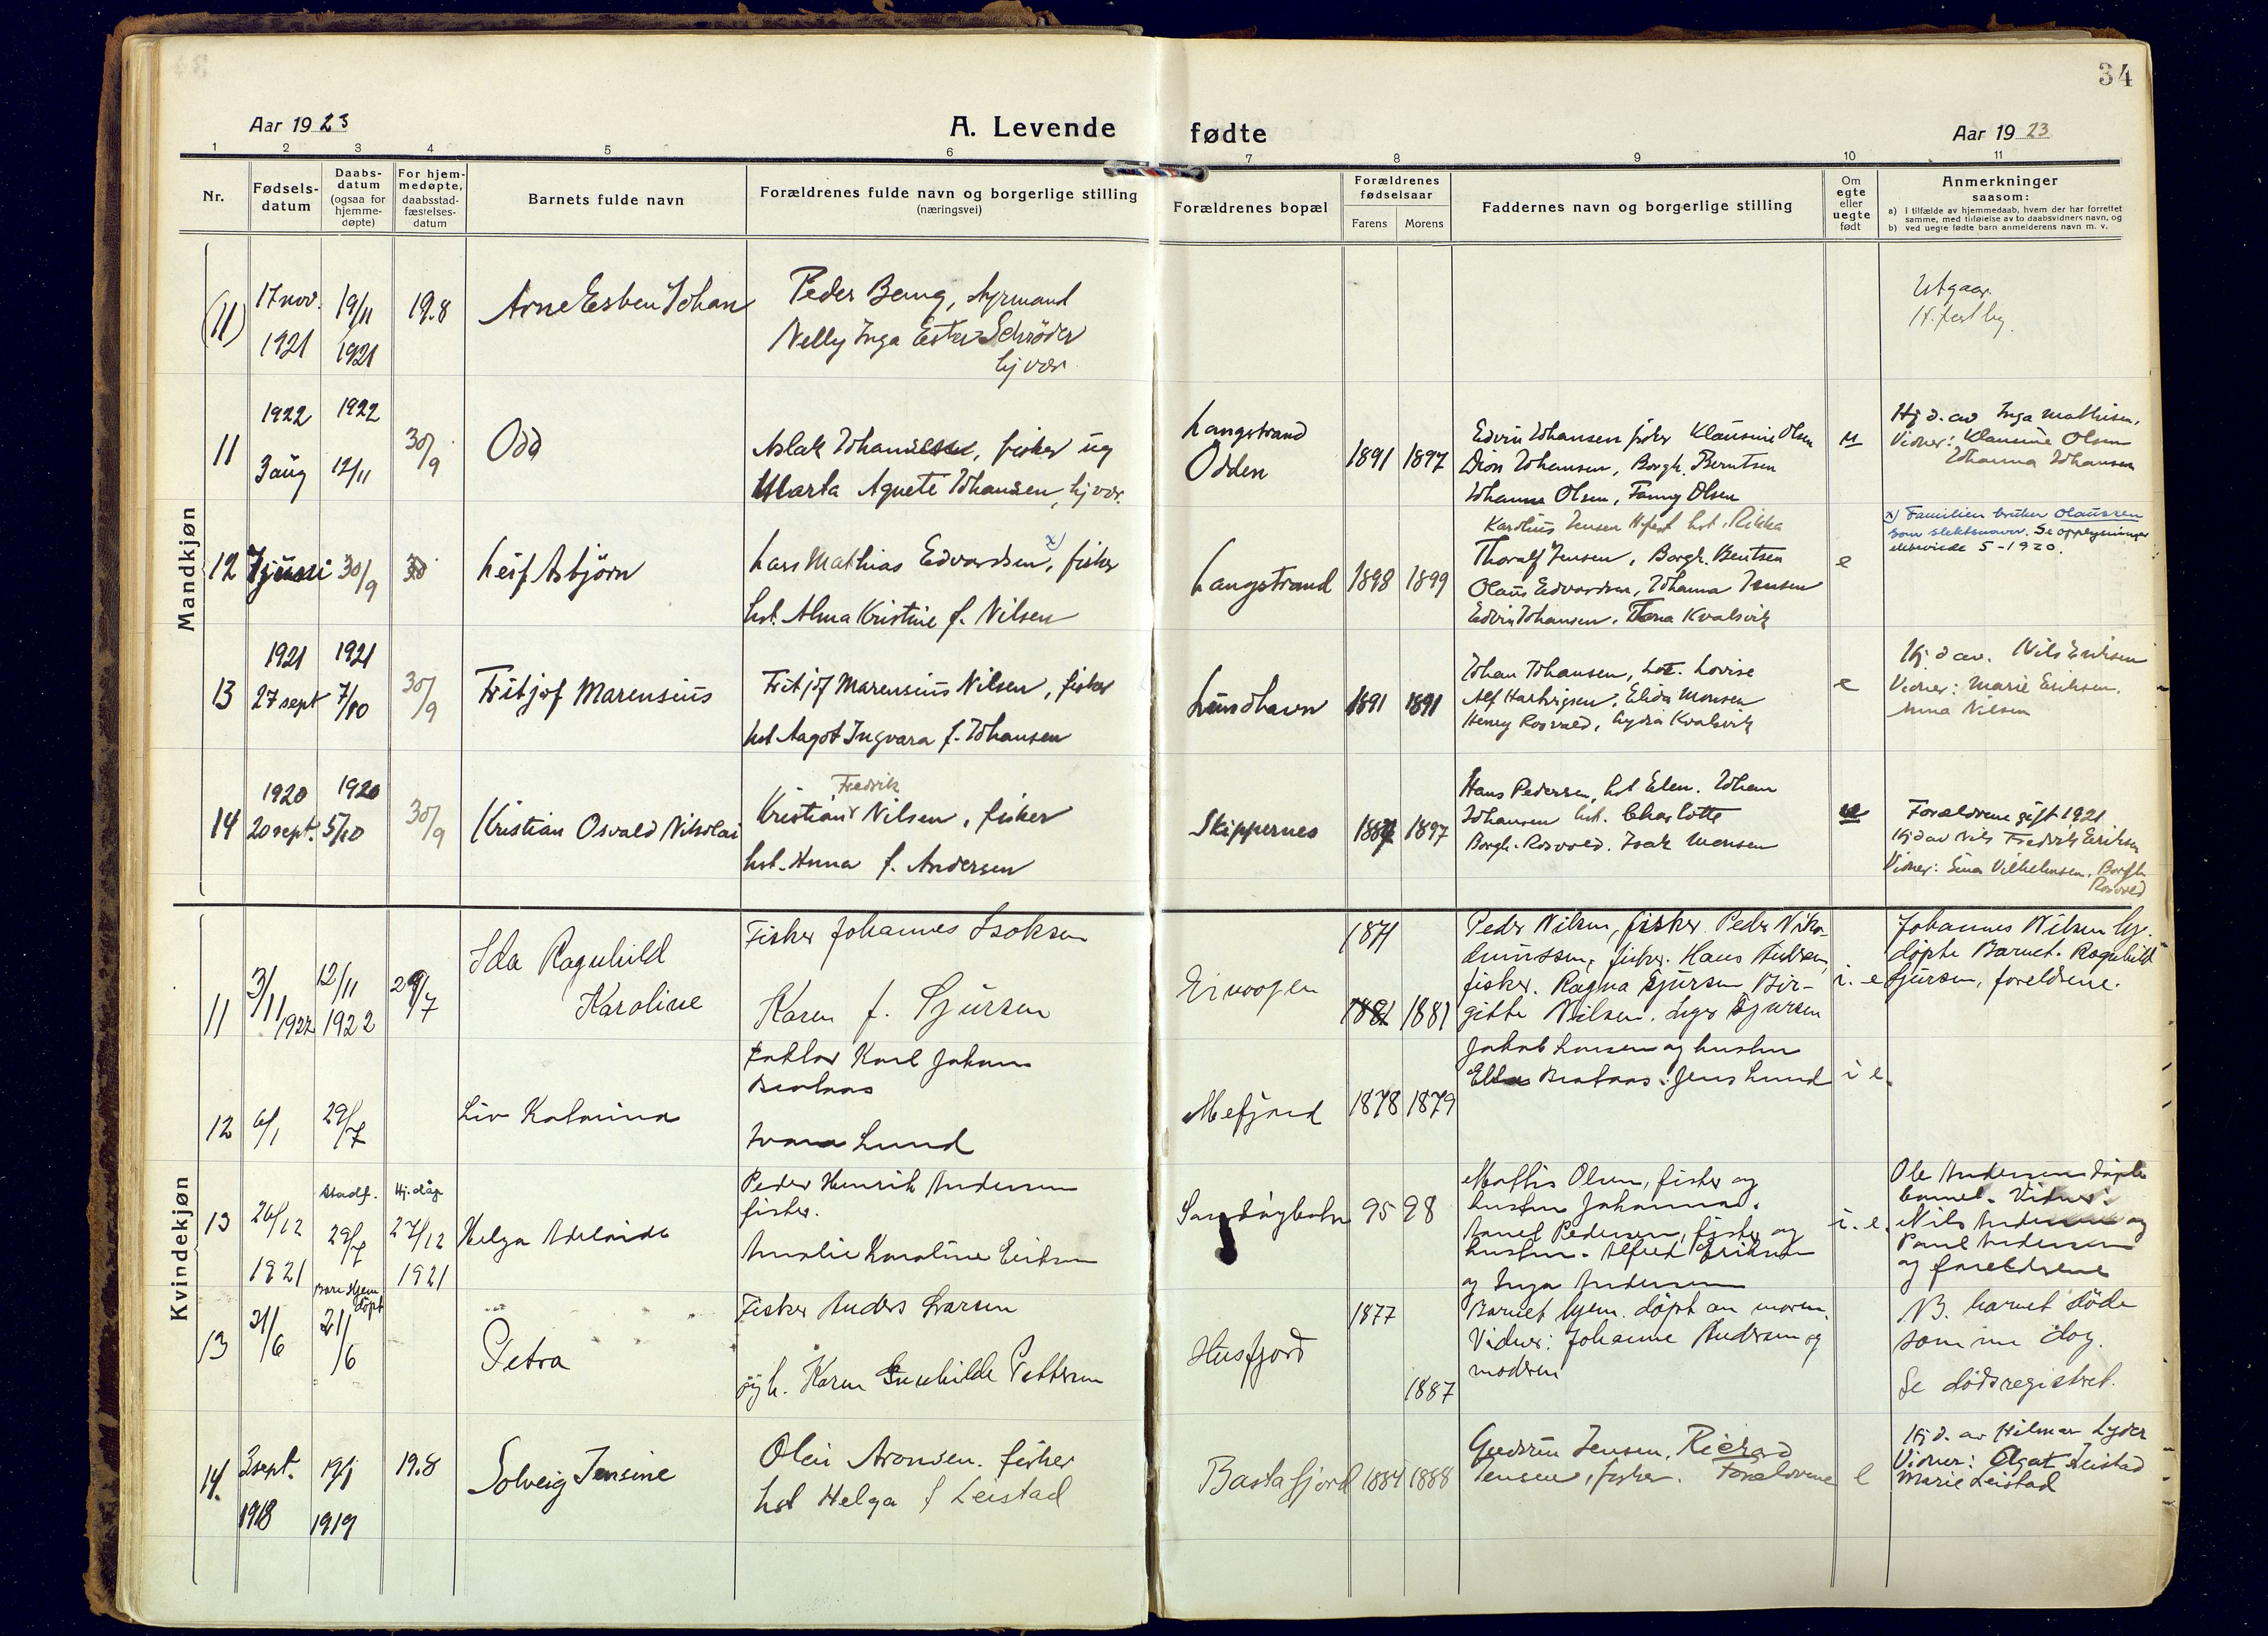 34
Aar 1923
A. Levende fødte
Aar 1923
1 2 3 4 5 6 7 8 9 10 11
Nr.
Fødsels-
datum
Daabs-
datum
(ogsaa for
hjemme-
døpte)
For hjem-
medøpte,
daabsstad-
fæstelses-
datum
Barnets fulde navn
Forældrenes fulde navn og borgerlige stilling
(næringsvei)
Forældrenes bopæl
Forældrenes
fødselsaar
Farens Morens
Faddernes navn og borgerlige stilling
Om
egte
eller
uegte
født
Anmerkninger
saasom:
a) i tilfælde av hjemmedaab, hvem der har forrettet
samme, med tilføielse av to daabsvidners navn, og
b) ved uegte fødte barn anmelderens navn m. v.
Mandkjøn
(11)
17 nov.
1921
19/11
1921
19.8
Arne Esben Johan
Peder Bang, styrmand
Nelly Inga Ester Schrøder
hj vær
Utgaar.
H.fest bg.
11
1922
3 aug
1922
12/11
30/9
Odd
Aslak Johansen, fisker ug
Marta Agnete Johansen, hj vær.
Langstrand
Odden
1891 1897
Edvin Johansen fisker Klausine Olsen
Dion Johansen, Borgh. Berntsen
Johanne Olsen, Fanny Olsen
u
Hj d. av Inga Mathisen,
Vidner: Klausine Olsen
Johanna Johansen
12
7 juni
30/9
30
Leif Asbjörn
Lars Mathias Edvardsen x), fisker
hst. Alma Kristine f. Nilsen
Langstrand
1898 1899
Karolius Jensen H.fest hst. Rikka
Thoralf Jensen, Borgh. Bentsen
Olaus Edvardsen, Johanna Jensen
Edvin Johansen, Thora Kvalsvik
e
x) Familien bruker Olaussen
som slektsnavn. Se opplysninger
5-1920.
13
1921
27 sept
1921
7/10
30/9
Fritjof Marensius
Fritjof Marensius Nilsen, fisker
hst Aagot Ingvara f. Johansen
Lundhavn
1891 1891
Johan Johansen, hst. Lovise
Alf Hartvigsen, Elida Monsen
Henry Rosvold, Lydia Kvalsvik
e
Hj. d av. Nils Eriksen
Vidner: Marie Eriksen.
Anna Nilsen
14
1920
20 sept.
1920
5/10
30/9
Kristian Osvald Nikolai
Fredrik
Kristian Nilsen, fisker
hst. Anna f. Andersen
Skippernes
1887 1897
Hans Pedersen, hst Elen. Johan
Johansen hst. Charlotte
Borgh. Rosvold. Isak Monsen
u
Forældrene gift 1921
Hj d av Nils Fredrik Eriksen
Vidner: Sina Vilhelmsen, Borgh
Rosvold
Kvindekjøn
11
3/11
1922
12/11
1922
29/7
Ida Ragnhild
Karoline
Fisker Johannes Isaksen
Karen f. Sjursen
1871
1881 1881
Peder Nilsen, fisker. Peder Niko-
demussen, fisker. Hans Andersen,
fisker. Ragna Sjursen, Bir-
gitte Nilsen. Inger Sjursen
i. e
Johannes Nilsen hj.
døpte Barnet. Ragnhild
Sjursen, foreldrene.
12
6/1
29/7
Liv Katarina
Karl Johan
Lund
Mefjord
1878 1879
Jakob Larsen og hustru
Jens Lund
i e.
13
26/12
1921
Stadf.
29/7
Hj. dåp
27/12
1921
Helga Adelaide
Peder Henrik Andersen
fisker.
Amalie Karoline Eriksen
95 98
Mathis Olsen, fisker og
hustru Johanna.
Pedersen, fisker og
hustru. Alfred Eriksen
og Inga Andersen
i. e.
Ole Andersen døpte
barnet. Vidner:
Nils Andersen og
Paul Andersen
og foreldrene
13
21/6
Bare Hjem
døpt
21/6
Petra
Fisker Anders Larsen
ugh. Karen Gunhilde Pettersen
Husfjord
1877
1887
Barnet hjem. døpt av moren.
Vidner: Johanne Andersen og
modren
NB. barnet døde
samme dag.
Se dødsregistret.
14.
3 sept.
1918
19/1
1919
19.8
Solveig Jensine
Olai Aronsen. fisker
hst Helga f Leistad
Bastafjord
1884 1888
Gudrun Jensen, Richard
Jensen, fisker. Forældrene
e
Hj d. av Hilmar Lyder
Vidner: Leistad
Marie Leistad